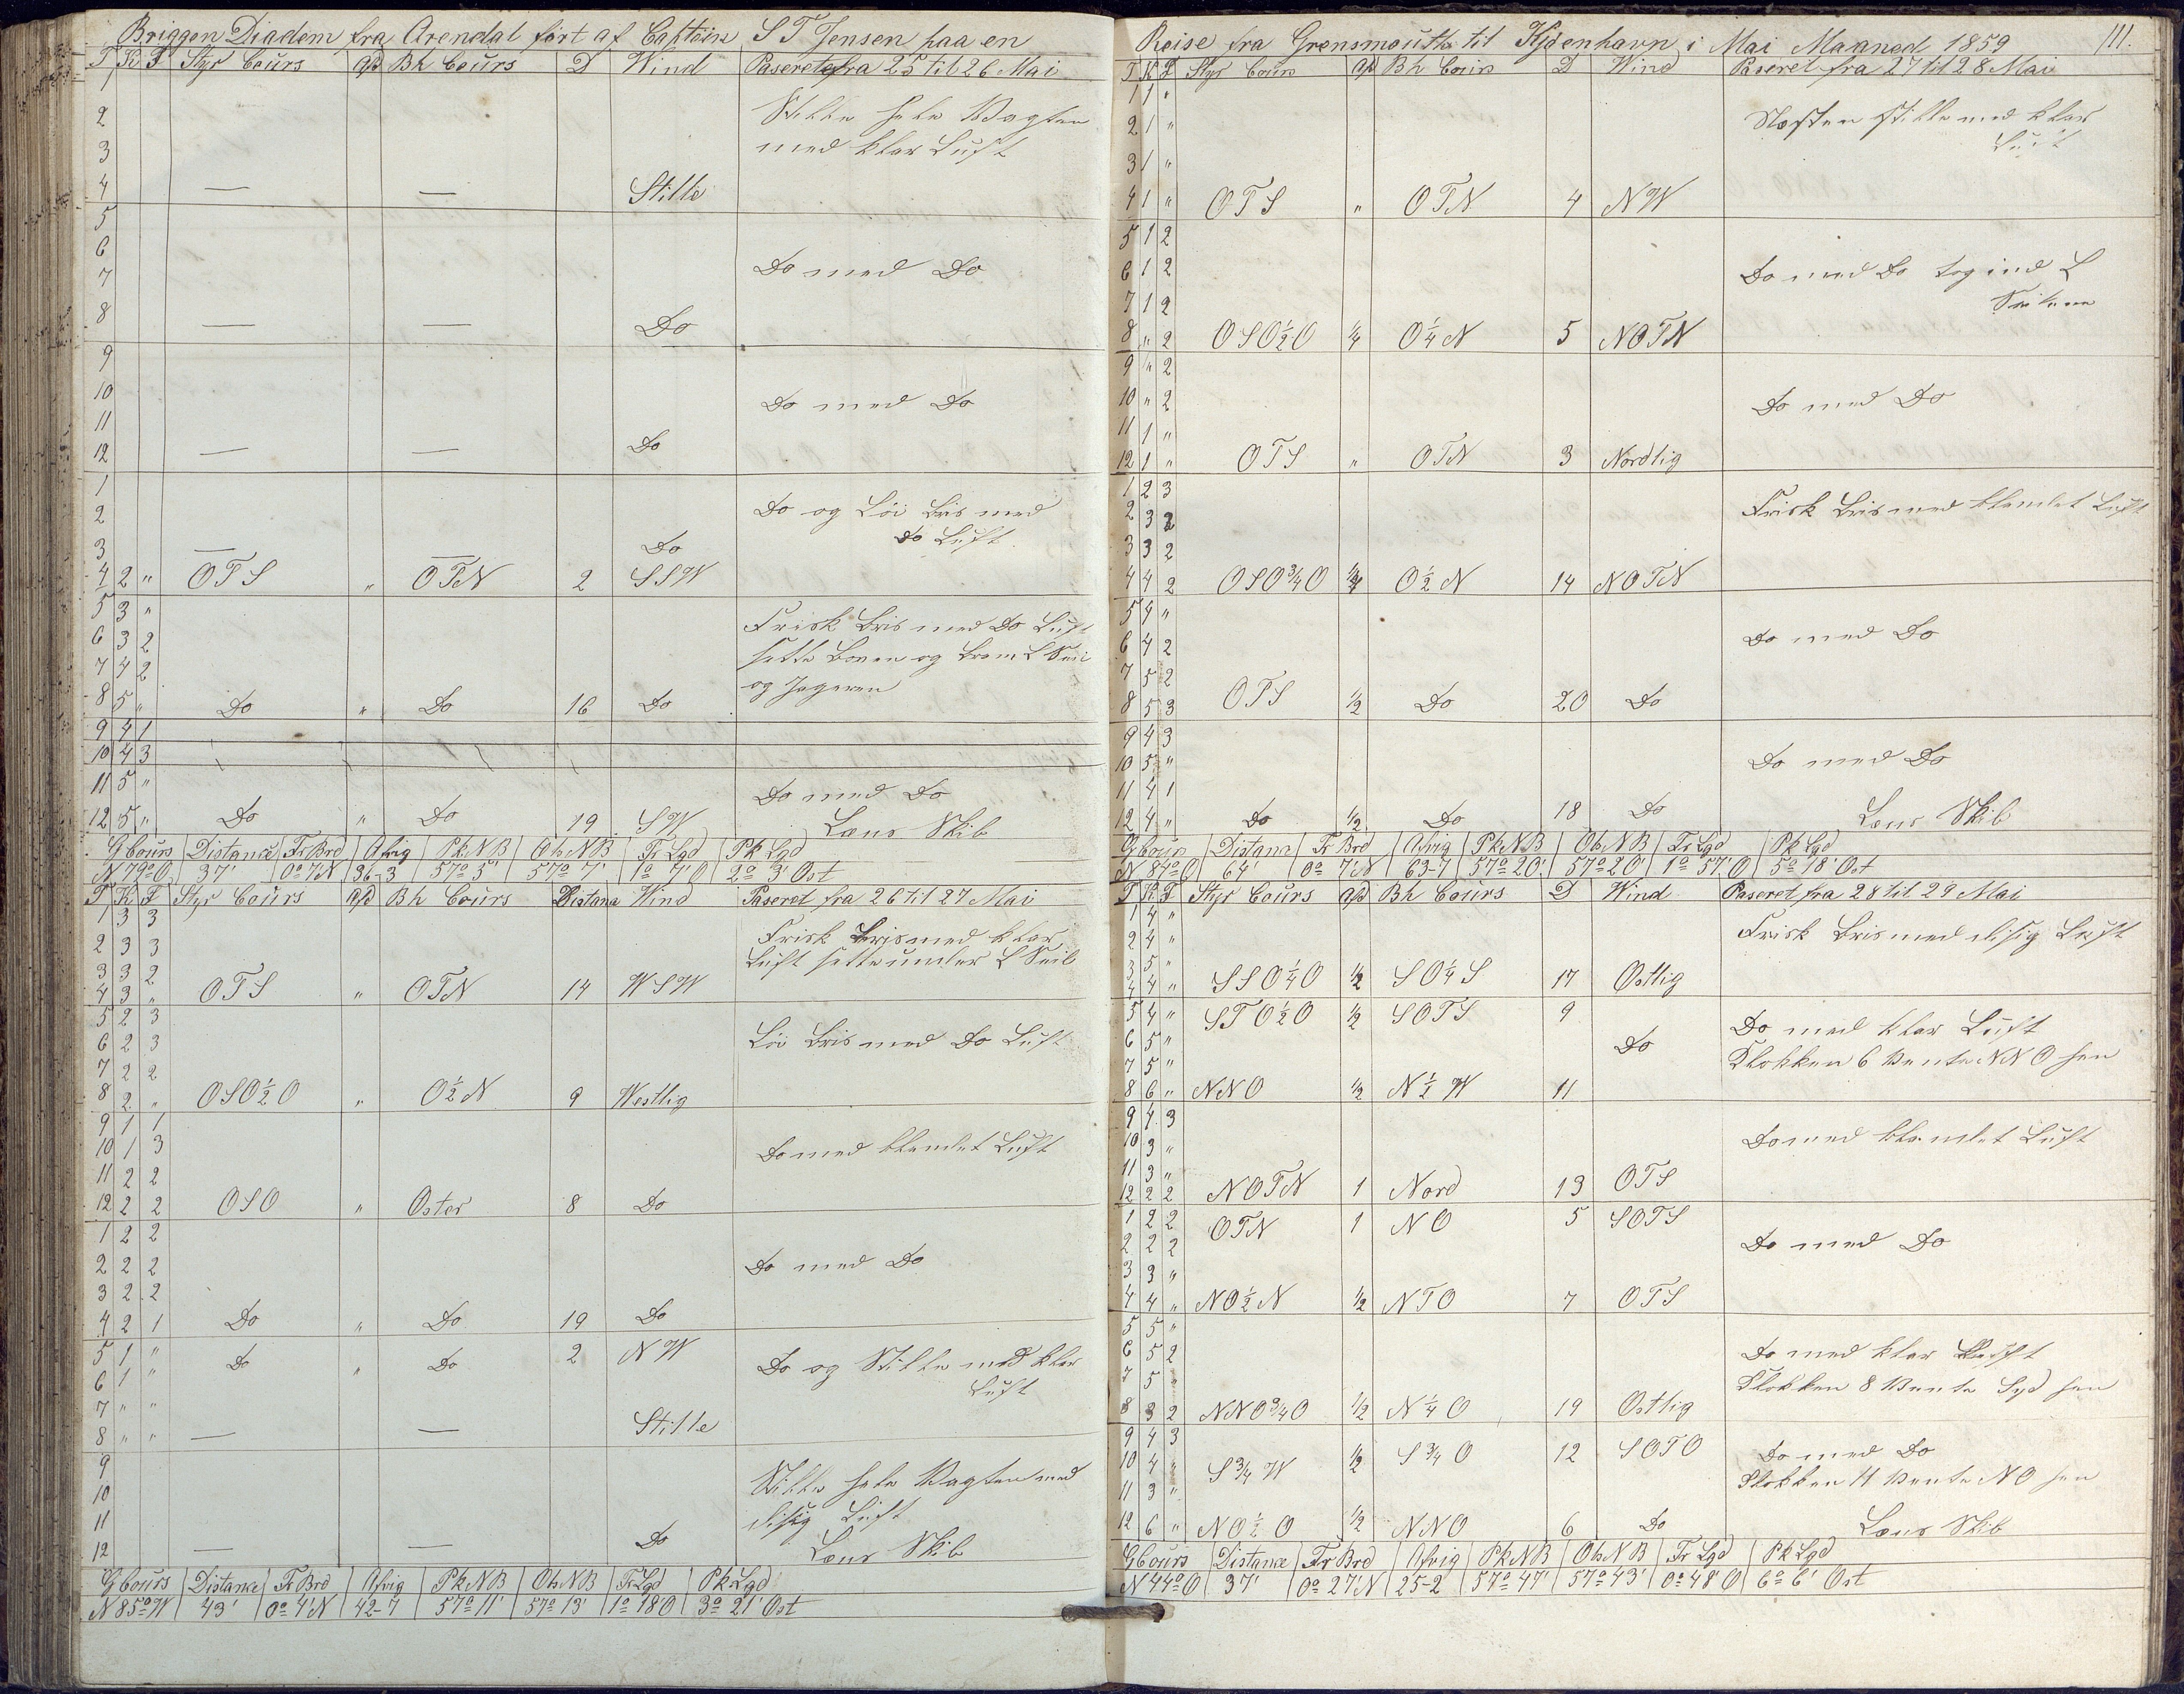 Briggen Diadem fra Arendal ført af Captein S T Jensen paa en
T K F Styr Cours Afd Bh Cours D Wind Paseret fra 25 til 26 Mai
1
2 Stille hele Vagten
3 med klar Luft
4 — — Stille
5
6
7 Do med Do
8 — — Do
9
10 Do med Do
11
12 — — Do
1
2 Do og Löi Bris med
3 — — Do do Luft
4 2 " OTS " OTN 2 SSW
5 3 "
6 3 2 Frisk Bris med Do Luft
7 4 2 sette Boven og Bram L Seil
8 5 " Do " Do 16 Do og Jageren
9 4 1
10 4 3
11 5 " Do med Do
12 5 " Do " Do 19 SW Lens Skib
G Cours Distance Fr Brd Afvig Pk NB Ob NB Fr Lgd Pk Lgd
N 79° O 37' 0° 7'N 36-3 57° 5' 57° 7' 1° 7' O 2° 3' Ost
T K F Styr Cours Afd Bh Cours Distana Wind Paseret fra 26 til 27 Mai
1 3 3
2 3 3 Frisk Bris med klar
3 3 2 Luft sette under L Seil
4 3 " OTS " OTN 14 WSW
5 2 3
6 2 3 Löi Bris med Do Luft
7 2 2
8 2 " OSO½O " O½N 9 Westlig
9 1 1
10 1 3 Do med skandet Luft
11 2 2
12 2 2 OSO " Oster 8 Do
1 2 2
2 2 2 Do med Do
3 2 2
4 2 1 Do " Do 19 Do
5 1 " Do " Do 2 NW
6 1 " Do og Stille med klar
7 " " Luft
8 " " — — Stille
9
10 Stille hele Vagten med
11 disig Luft
12 — — Do Lens Skib
G Cours Distance Fr Brd Afvig Pk NB Ob NB Fr Lgd Pk Lgd
N 85° W 43' 0° 4'N 42-7 57° 11' 57° 13' 1° 18 O 3° 21' Ost
Reise fra Grensmouth til Kjöenhavn i Mai Maaned 1859 111.
T K F Styr Cours Afd Bh Cours D Wind Paseret fra 27 til 28 Mai
1 1 "
2 1 " Næsten stille med klar
3 1 " Luft
4 1 " OTS " OTN 4 NW
5 1 2
6 1 2 Do med Do tog ind L
7 1 2 Seilene
8 " 2 OSO½O ¼ O¼N 5 NOTN
9 " 2
10 " 2 Do med Do
11 1 "
12 1 " OTS " OTN 3 Nordlig
1 2 3
2 3 2 Frisk Bris med skandet Luft
3 3 2
4 4 2 OSO¾O ¼ O½N 14 NOTN
5 4 "
6 4 2 Do med Do
7 5 2
8 5 3 OTS ½ Do 20 Do
9 4 3
10 5 " Do med Do
11 4 1
12 4 " Do ½ Do 18 Do Lens Skib
G Cours Distans Fr Brd Afvig Pk NB Ob NB Fr Lgd Pk Lgd
N 84° O 64' 0° 7'N 63-7 57° 20' 57° 20' 1° 57' O 5° 18' Ost
T K F Styr Cours Afd Bh Cours D Wind Paseret fra 28 til 29 Mai
1 4 "
2 4 " Frisk Bris med disig Luft
3 5 "
4 4 " SSO¼O ½ SO¼S 17 Ostlig
5 4 " STO½O ½ SOTS 9
6 5 " Do Do med klar Luft
7 5 " Klokken 6 vente NNO hen
8 6 " NNO ½ N½W 11
9 4 3
10 3 " Do med skandet Luft
11 3 "
12 2 2 NOTN 1 Nord 13 OTS
1 2 2 OTN 1 NO 5 SOTS
2 2 2 Do med Do
3 3 "
4 4 " NO½N ½ NTO 7 OTS
5 5 "
6 5 2 Do med klar Luft
7 5 " Klokken 8 vente Syd hen
8 3 2 NNO¾O ½ N¼O 19 Ostlig
9 4 3
10 4 " S¾W ½ S¾O 12 SOTO Do med Do
11 3 " Klokken 11 vente NO hen
12 6 " NO½O ½ NNO 6 Do Lens Skib
G Cours Distance Fr Brd Afvig Pk NB Ob NB Fr Lgd Pk Lgd
N 44° O 37' 0° 27 N 25-2 57° 47' 57° 43' 0° 48' O 6° 6' Ost